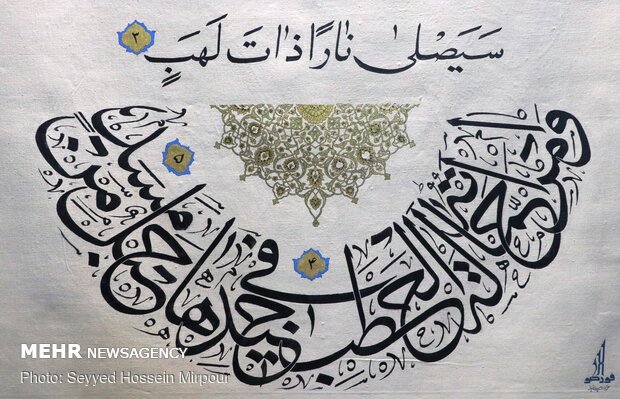 سَيَصْلىٰ نٰارًا ذٰاتَ لَهَبٍ ۳
وامرأته حمالة الحطب ۴ في جيدها حبل من مسد ۵
MEHR NEWSAGENCY
Photo: Seyyed Hossein Mirpour